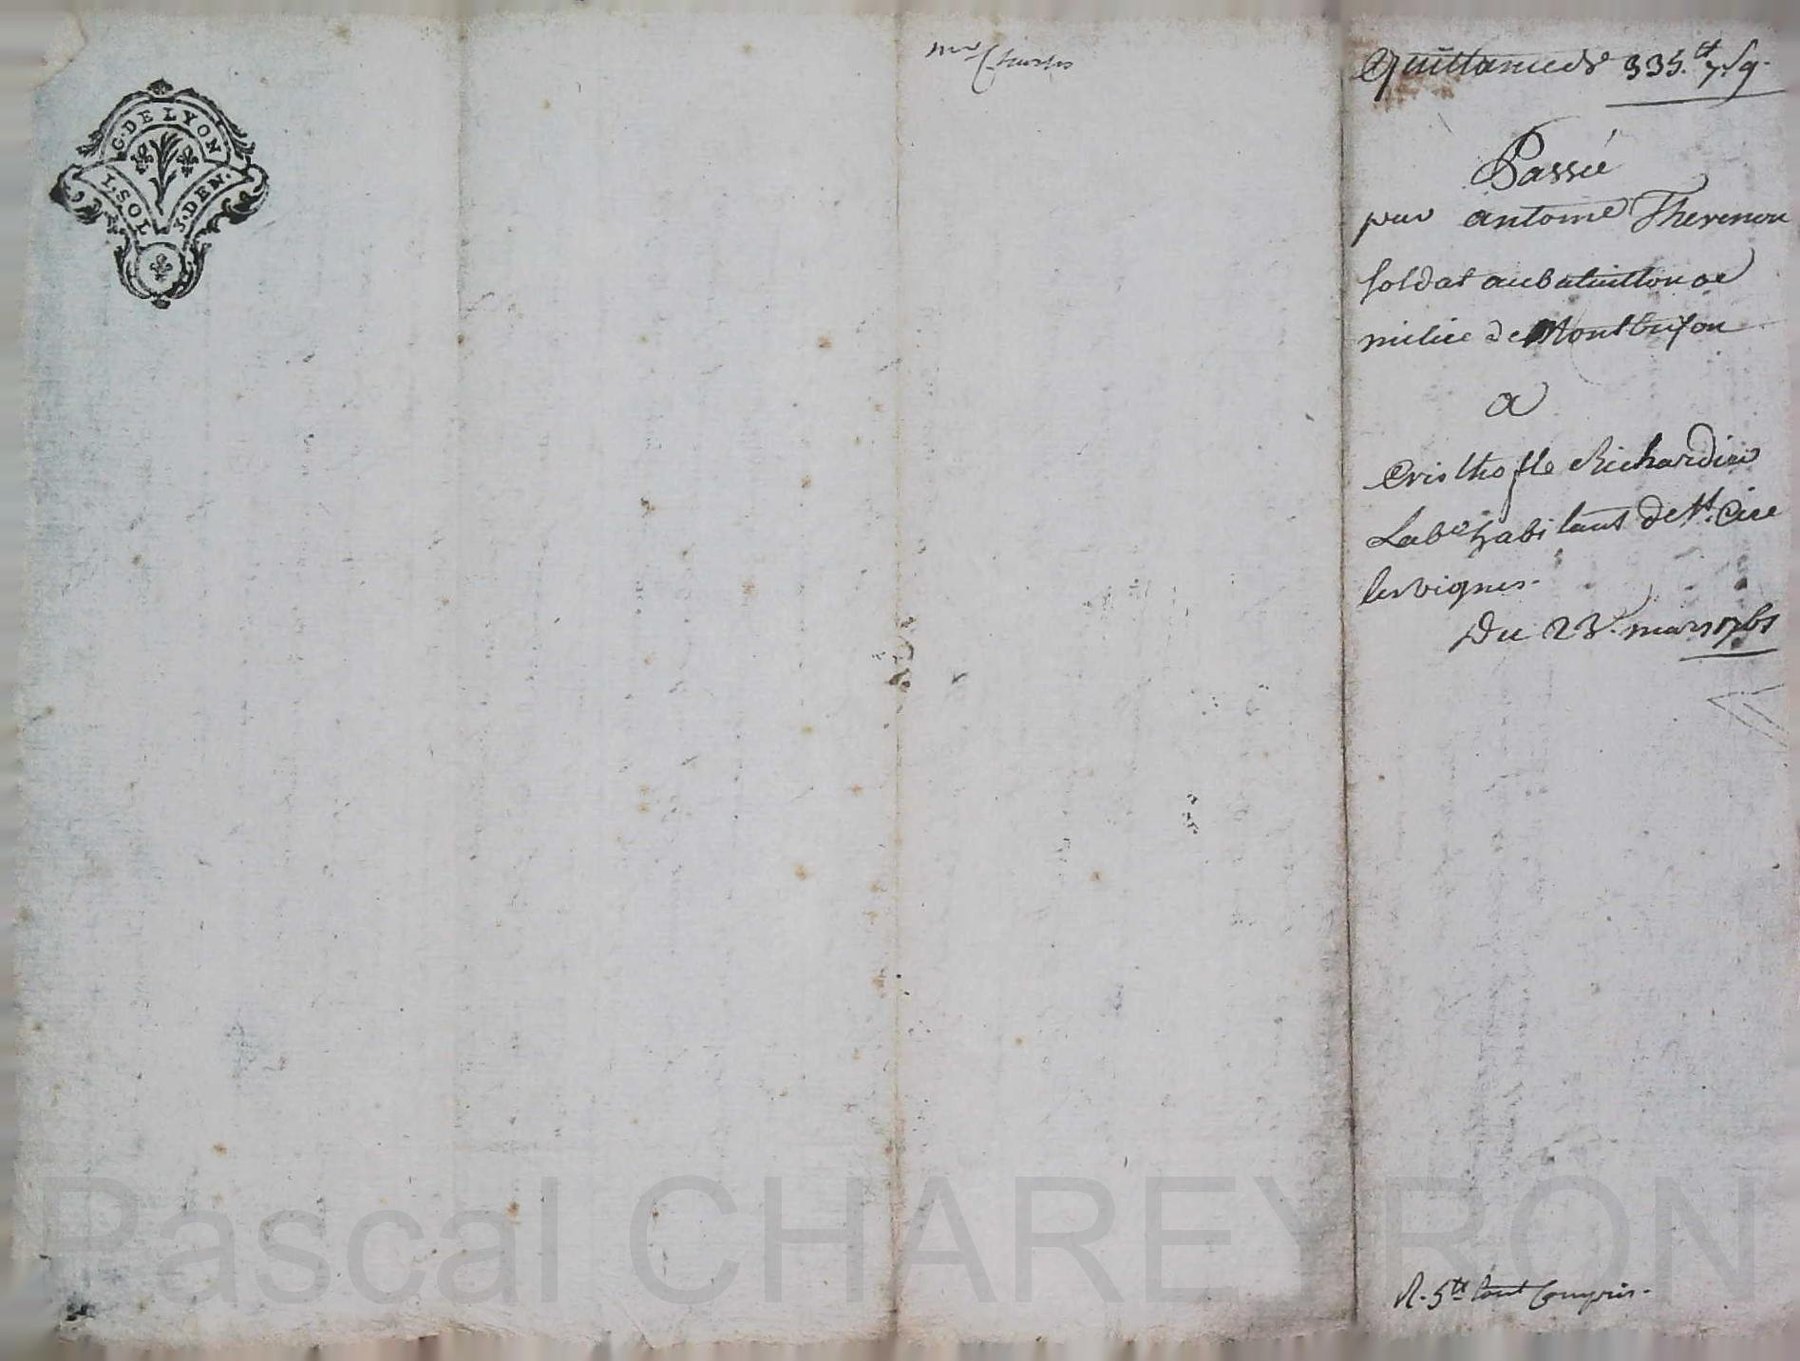 G. DE LYON
1. SOL 3. DEN.
mr Charles
Quittance de 335.tt 7s 9.
Passée
par antoine Thevenon
soldat au bataillon de
milice de Montbrison
a
Cristhofle Richardier
Labr habitant de st. Cire
les vignes.
Du 23. mars 1761
R. 5tt tout Compris.
Pascal CHAREYRON